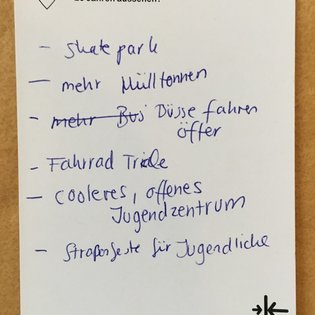 20 Jahren aussehen?
- Skatepark
- mehr Mülltonnen
- mehr Bus Büsse fahren
öfter
- Fahrrad Triale
- cooleres, offenes
Jugendzentrum
- Straßenfeste für Jugendliche